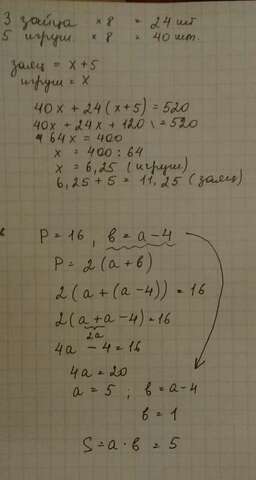 3 зайца × 8 = 24 шт
5 игруш. × 8 = 40 шт.
заяц = x + 5
игруш = x
40x + 24(x+5) = 520
40x + 24x + 120 = 520
64x = 400
x = 400 : 64
x = 6,25 (игруш)
6,25 + 5 = 11,25 (заяц)
P = 16, в = a - 4
P = 2(a + в)
2(a + (a - 4)) = 16
2(a + a - 4) = 16
2a
4a - 4 = 16
4a = 20
a = 5 ; в = a - 4
в = 1
S = a · в = 5